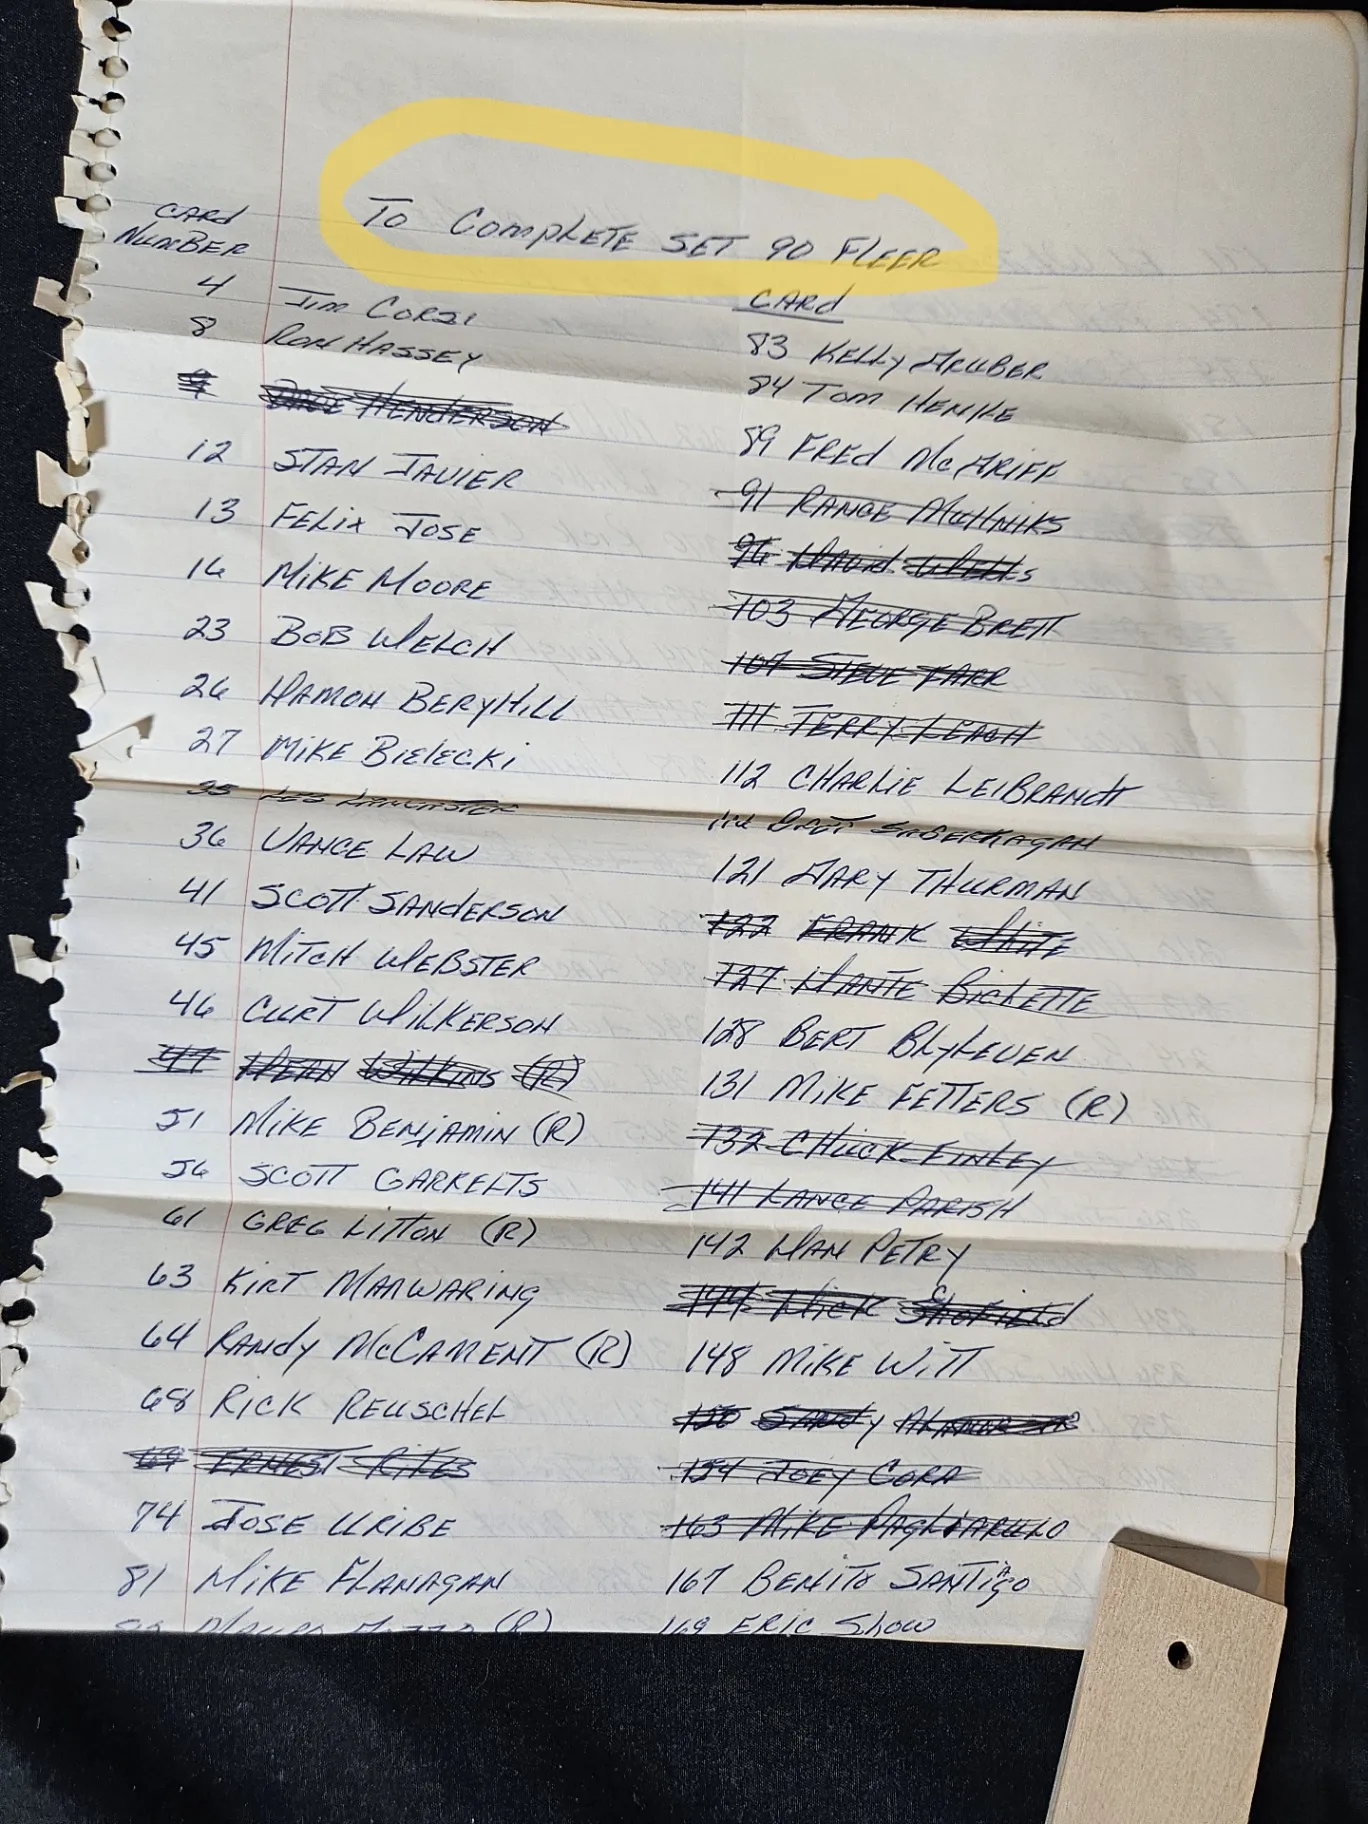 To Complete SET 90 FLEER
CARd
NUMBER
4 Jim CORSI
8 RON HASSEY
9 DAVE HENDERSON
12 STAN JAVIER
13 FELIX JOSE
16 MIKE MOORE
23 BOB WELCH
26 DAMON BERYHILL
27 MIKE BIELECKI
35 LES LANCASTER
36 VANCE LAW
41 SCOTT SANDERSON
45 MITCH WEBSTER
46 CURT WILKERSON
47 DEAN WILKINS (R)
51 MIKE BENJAMIN (R)
56 SCOTT GARRELTS
61 GREG LITTON (R)
63 KIRT MANWARING
64 RANDY McCAMENT (R)
68 RICK REUSCHEL
69 ERNEST RILES
74 JOSE URIBE
81 MIKE FLANAGAN
(R)
CARd
83 KELLY GRUBER
84 TOM HENKE
89 FREd McGRIFF
91 RANCE MULINIKS
96 DAVID WELLS
103 GEORGE BRETT
107 STEVE FARR
111 TERRY LEACH
112 CHARLIE LEIBRANDT
116 BRET SABERHAGAN
121 GARY THURMAN
122 FRANK WHITE
127 DANTE BICHETTE
128 BERT BLYLEVEN
131 MIKE FETTERS (R)
132 CHUCK FINLEY
141 LANCE PARISH
142 DAN PETRY
144 DICK SCHOFIELD
148 MIKE WITT
150 SANDY ALAMAR
154 JOEY CORA
163 MIKE PAGLIARULO
167 BENITO SANTIAGO
169 ERIC SHOW